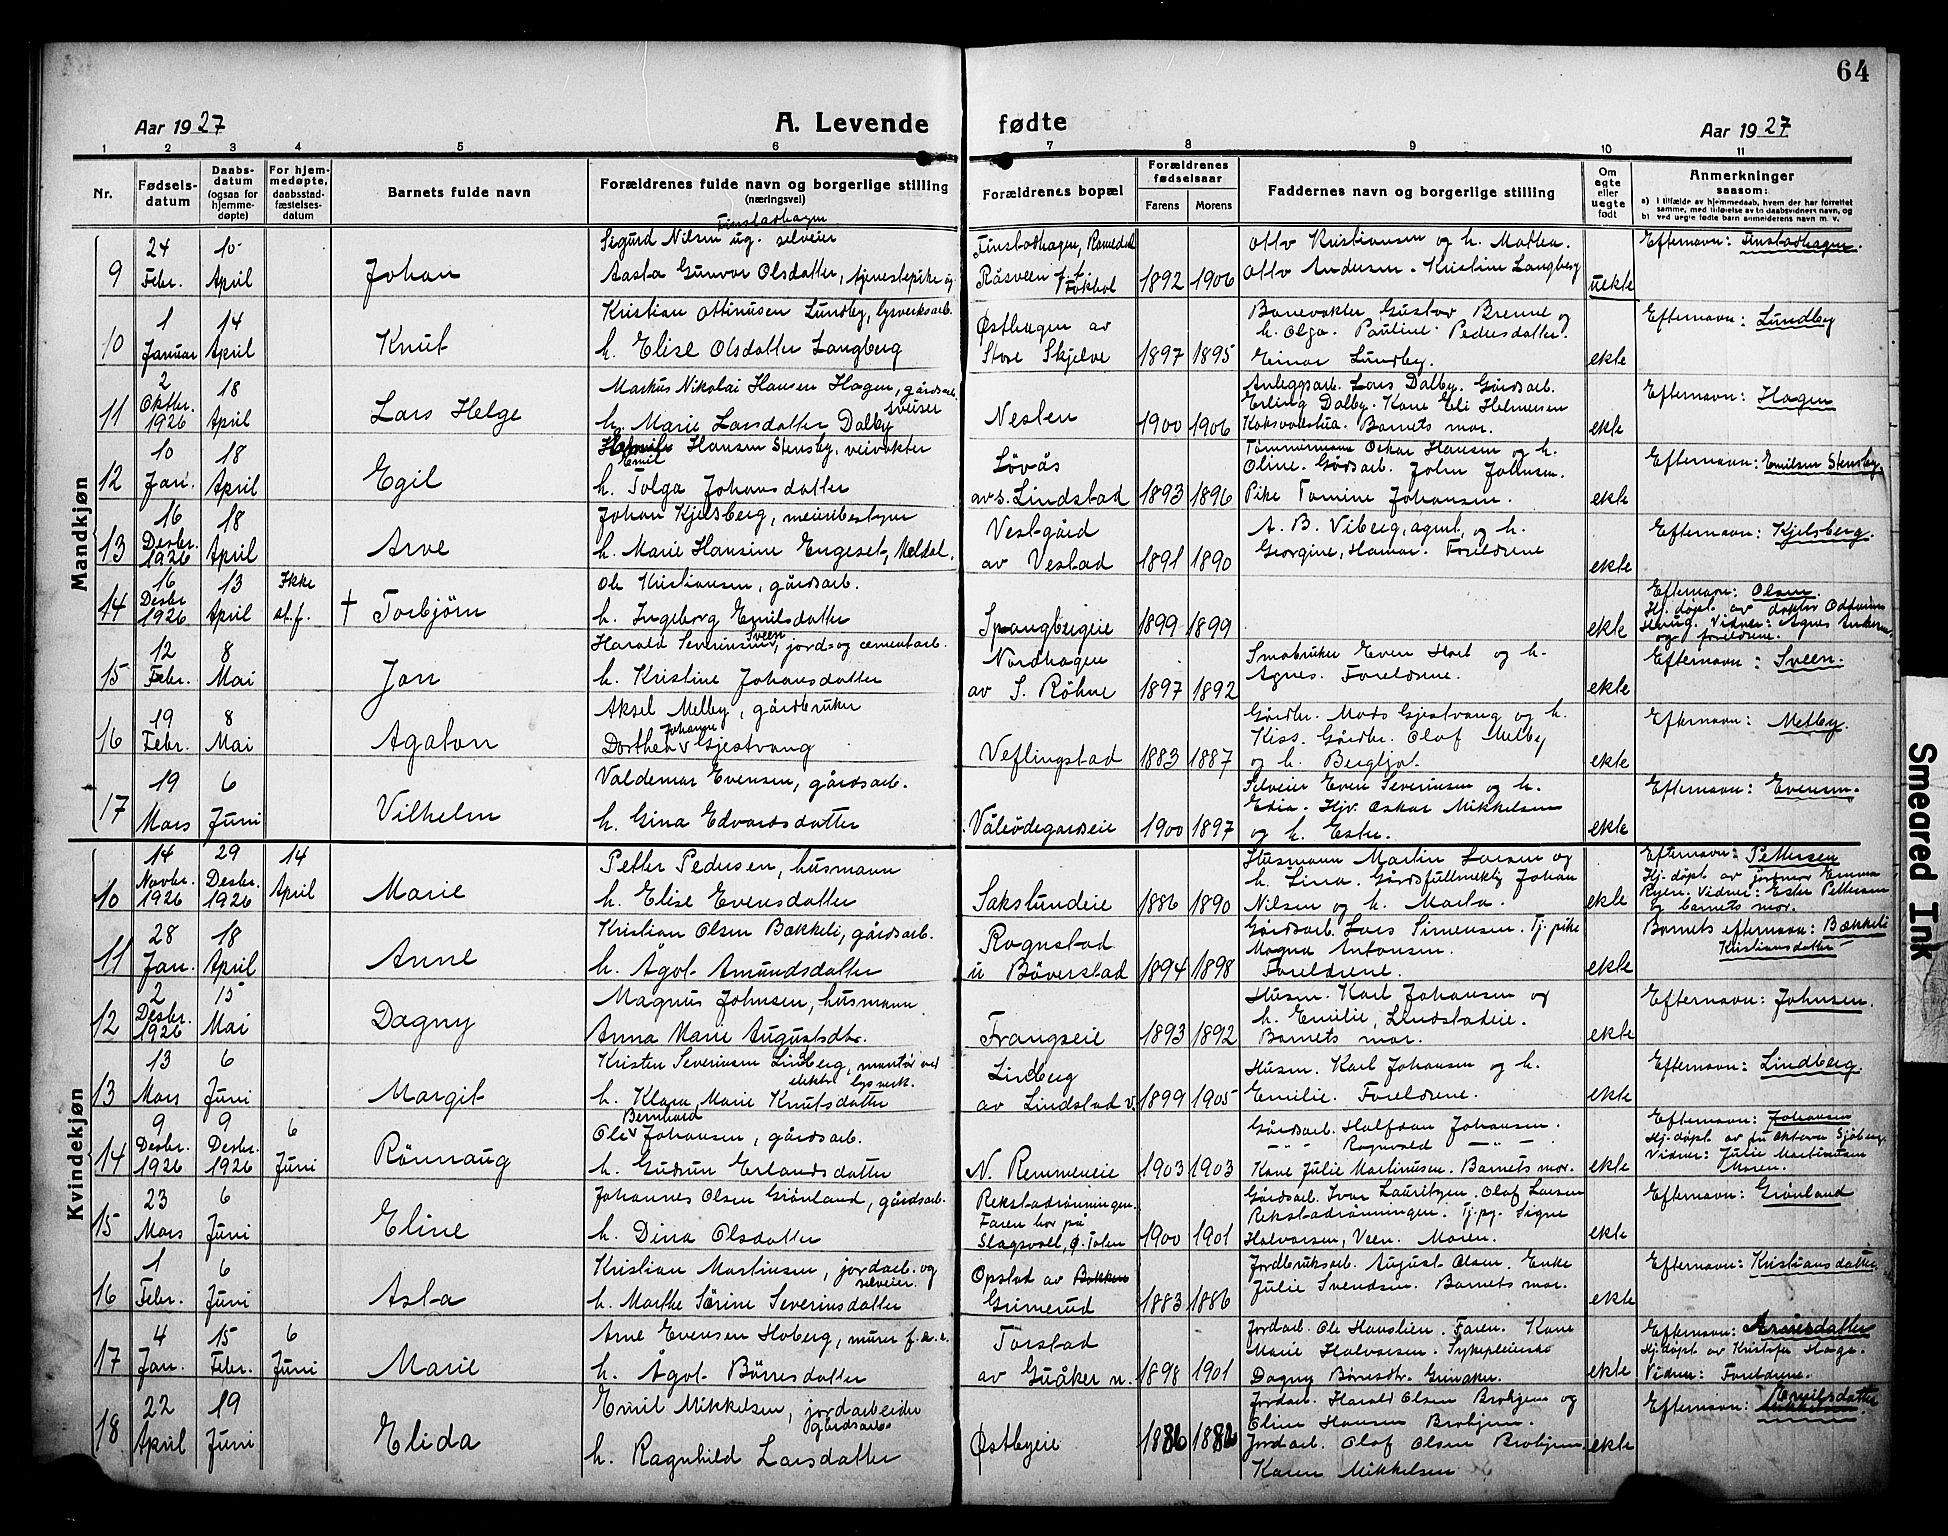 64
Aar 1927
A. Levende fødte
Aar 1927
1 2 3 4 5 6 7 8 9 10 11
Nr.
Fødsels-
datum
Daabs-
datum
(ogsaa for
hjemme-
døpte)
For hjem-
medøpte,
daabsstad-
fæstelses-
datum
Barnets fulde navn
Forældrenes fulde navn og borgerlige stilling
(næringsvei)
Forældrenes bopæl
Forældrenes
fødselsaar
Farens
Morens
Faddernes navn og borgerlige stilling
Om
egte
eller
uegte
født
Anmerkninger
saasom:
a) I tilfælde av hjemmedaab, hvem der har forrettet
samme, med tilføielse av to daabsvidners navn, og
b) ved uegte fødte barn anmelderens navn m. v.
Mandkjøn
9
24 Febr.
10 April
Johan
Finstadhagen
Sigurd Nilsen ug. selveier
Aasta Gunvor Olsdatter, tjenestepike ug.
Finstadhagen, Romedal
Råsveen
1892 1906
Otto Kristiansen og h. Mathea.
Otto Andersen. Kristine Langberg
uekte
Efternavn: Finstadhagen.
10
1 Januar
14 April
Knut
Kristian Ottinusen Lundby, lysverksarb.
h. Elise Olsdatter Langberg
Østhagen av
Store Skjelve
1897 1895
Banevokter Gustav Brenne og
h. Olga. Pauline Pedersdatter.
Einar Lundby.
ekte
Efternavn: Lundby
11
2 Oktbr. 1926
18 April
Lars Helge
Markus Nikolai Hansen Hagen, gårdsarb.
sveiser
h. Marie Larsdatter Dalby
Nesten
1900 1906
Anleggsarb. Lars Dalby. Gårdsarb.
Erling Dalby. Kone Eli Helmersen
Koksvoldstua. Barnets mor.
ekte
Efternavn: Hagen
12
10 Jan.
18 April
Egil
Emil Hansen Stensby, veivokter
h. Tolga Johansdatter
Lövås
av s. Lindstad
1893 1896
Tömmermann Oskar Hansen og h.
Oline. Gårdsarb. John Johnsen.
Pike Tomine Johansen.
ekte
Efternavn: Emilsen Stensby.
13
16 Desbr. 1926
18 April
Arve
Johan Kjelsberg, meieribestyrer
h. Marie Hansine Engeset, Meldal.
Vestgård
av Vestad
1891 1890
A. B. Viberg, agent, og h.
Georgine, Hamar. Foreldrene
ekte
Efternavn: Kjelsberg.
14
16 Desbr. 1926
13 April
Ikke st.f.
† Torbjørn
Ole Kristiansen, gårdsarb.
h. Ingeborg Emilsdatter
Spangbergeie
1899 1899
ekte
Efternavn: Olsen.
Hj.døpt av doktor
Vidner: Agnes
og foreldrene.
15
12 Febr.
8 Mai
Jan
Harald Severinsen Sveen, jord- og cementarb.
h. Kristine Johansdatter
Nordhagen
av S. Röhne
1897 1892
Småbruker Even Hoel og h.
Agnes. Foreldrene.
ekte
Efternavn: Sveen.
16
19 Febr.
8 Mai
Agaton
Aksel Melby, gårdbruker
Johanne
Dorthea v Gjestvang
Veflingstad
1883 1887
Gårdbr. Mads Gjestvang og h.
Kiss. Gårdbr. Olaf Melby
og h. Bergljot.
ekte
Efternavn: Melby.
17
19 Mars
6 Juni
Vilhelm
Valdemar Evensen, gårdsarb.
h. Gina Edvardsdatter
Våleödegardseie
1900 1897
Selveier Even Severinsen og h.
Edia. Hjv. Oskar Mikkelsen
og h. Ester.
ekte
Efternavn: Evensen.
Kvindekjøn
10
14 Novbr. 1926
29 Desbr. 1926
14 April
Marie
Petter Pedersen, husmann
h. Elise Evensdatter
Sakslundeie
1886 1890
Husmann Martin Larsen og
h. Lina. Gårdsfullmektig Johan
Nilsen og h. Marta.
ekte
Efternavn: Pettersen
Hj.døpt av jormor Emma
Ryen. Vidner: Ester Pettersen
og barnets mor.
11
28 Jan.
18 April
Anne
Kristian Olsen Bækkeli, gårdsarb.
h. Ågot Amundsdatter
Rognstad
u Böverstad
1894 1898
Gårdsarb. Lars Simensen. Tj.pike
Magna Antonsen.
Foreldrene.
ekte
Barnets efternavn: Bækkeli
Kristiansdatter
12
2 Desbr. 1926
15 Mai
Dagny
Magnus Johnsen, husmann
Anna Marie Augustsdtr.
Frangseie
1893 1892
Husm. Karl Johansen og
h. Emilie, Lindstadeie.
Barnets mor.
ekte
Efternavn: Johnsen.
13
13 Mars
6 Juni
Margit
Krister Severinsen Lindberg, montør ved
elektr. lysverk.
h. Klara Marie Knutsdatter
Lindberg
av Lindstad v.
1899 1905
Husm. Karl Johansen og h.
Emilie. Foreldrene.
ekte
Efternavn: Lindberg.
14
9 Desbr. 1926
9 Desbr. 1926
6 Juni
Rönnaug
Bernhard
Ole v Johansen, gårdsarb.
h. Gudrun Erlandsdatter
N. Remmeneie
1903 1903
Gårdsarb. Halfdan Johansen.
— " — Rognvald — " — " —
Kone Julie Martinusen. Barnets mor.
ekte
Efternavn: Johansen
Hj.døpt av fru Oktavia Sjöberg.
Vidner: Julie Martinusen
Moren.
15
23 Mars
6 Juni
Eline
Johannes Olsen Grönland, gårdsarb.
h. Dina Olsdatter
Rekstadrönningen.
Faren bor på
Slagsvoll, Ø. Toten
1900 1901
Gårdsarb. Ivar Lauritzen. Olaf Larsen
Rekstadrönningen. Tj.pg. Signe
Halvorsen, Veen. Moren.
ekte
Efternavn: Grönland
16
1 Febr.
6 Juni
Asta
Kristian Martinsen, jordarb. og
selveier.
h. Marthe Sörine Severinsdatter
Opstad av Bakken
Grimerud
1883 1886
Jordbruksarb. August Olsen. Enke
Julie Svendsen. Barnets mor.
ekte
Efternavn: Kristiansdatter
17
4 Jan.
15 Febr.
6 Juni
Marie
Arne Evensen Hoberg, murer f.a.e.
h. Ågot Börresdatter
Torstad
av Guåker n.
1898 1901
Jordarb. Ole Hanslien. Faren. Kone
Marie Halvorsen. Sykepleierske
Dagny Börresdtr. Guåker.
ekte
Efternavn: Arnesdatter
Hj.døpt av Kristofer Hage.
Vidner: Foreldrene.
18
22 April
19 Juni
Elida
Emil Mikkelsen, jordarbeider
h. Ragnhild Larsdatter
Østbyeie
1886 1882
Jordarb. Harald Olsen Brohjem og
Oline Hansen Brohjem.
Jordarb. Olaf Olsen Brohjem.
Karen Mikkelsen
ekte
Efternavn: Emilsdatter
Mikkelsen
Smeared Ink